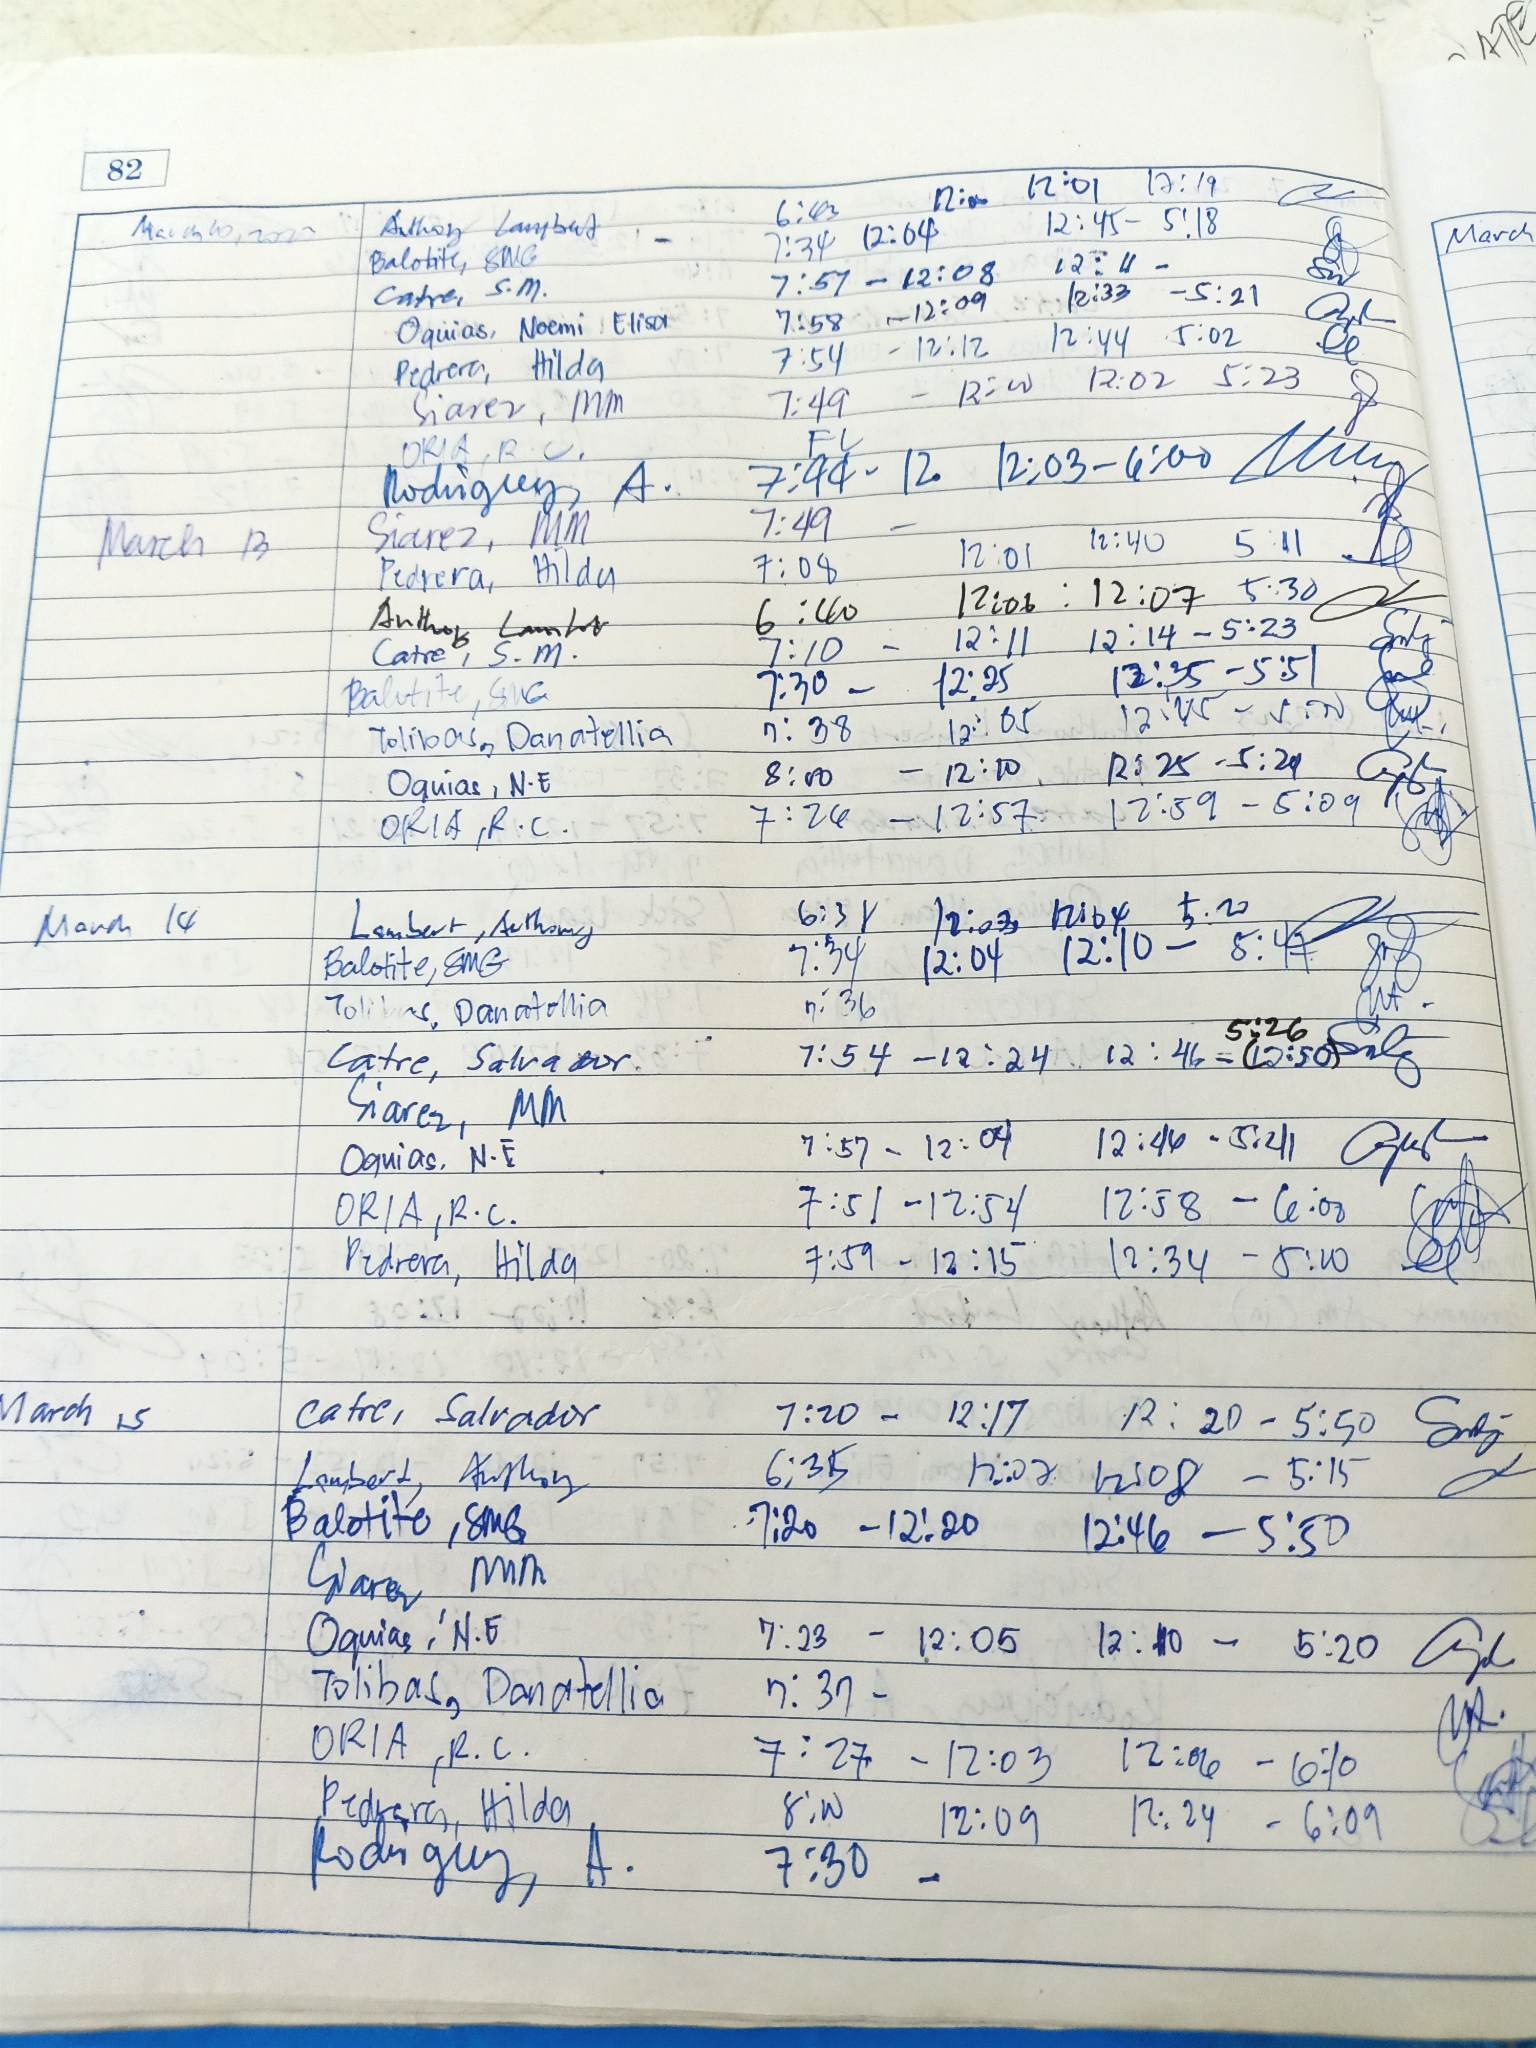 82
March 10, Anthony Lambert 6:43 12:00 12:01 17:19
Balotite, SMG - 7:34 12:04 12:45 - 5:18
Catre, S.M. 7:57 - 12:08 12:11 -
Oquias, Noemi Elisa 7:58 - 12:09 12:33 - 5:21
Pedrera, Hilda 7:54 - 12:12 12:44 5:02
Siarez, MM 7:49 - 12:00 12:02 5:23
ORIA, R.C. FL
Rodriguez, A. 7:44 - 12 12:03 - 6:00
March 13 Siarez, MM 7:49 -
Pedrera, Hilda 7:08 12:01 12:40 5:11
Anthony Lambert 6:40 12:06 : 12:07 5:30
Catre, S.M. 7:10 - 12:11 12:14 - 5:23
Balotite, SMG 7:30 - 12:25 12:35 - 5:51
Tolibas, Danatellia 7:38 12:05 12:45 -
Oquias, N.E 8:00 - 12:10 12:25 -
ORIA, R.C. 7:26 - 12:57 12:59 - 5:09
March 14 Lambert, Anthony 6:31 12:03 12:04 5:20
Balotite, SMG 7:34 12:04 12:10 -
Tolibas, Danatellia 7:36
5:26
Catre, Salvador. 7:54 - 12:24 12:46 - (12:50)
Siarez, MM
Oquias, N.E 7:57 - 12:04 12:46 - 5:21
ORIA, R.C. 7:51 - 12:54 12:58 - 6:00
Pedrera, Hilda 7:59 - 12:15 12:34 - 5:00
March 15 Catre, Salvador 7:20 - 12:17 12:20 - 5:50
Lambert, Anthony 6:35 12:07 12:08 - 5:15
Balotite, SMG 7:20 - 12:20 12:46 - 5:50
Siarez MM
Oquias, N.E 7:23 - 12:05 12:10 - 5:20
Tolibas, Danatellia 7:37 -
ORIA, R.C. 7:27 - 12:03 12:06 - 6:10
Pedrera, Hilda 8:00 12:09 12:24 - 6:09
Rodriguez, A. 7:30 -
March